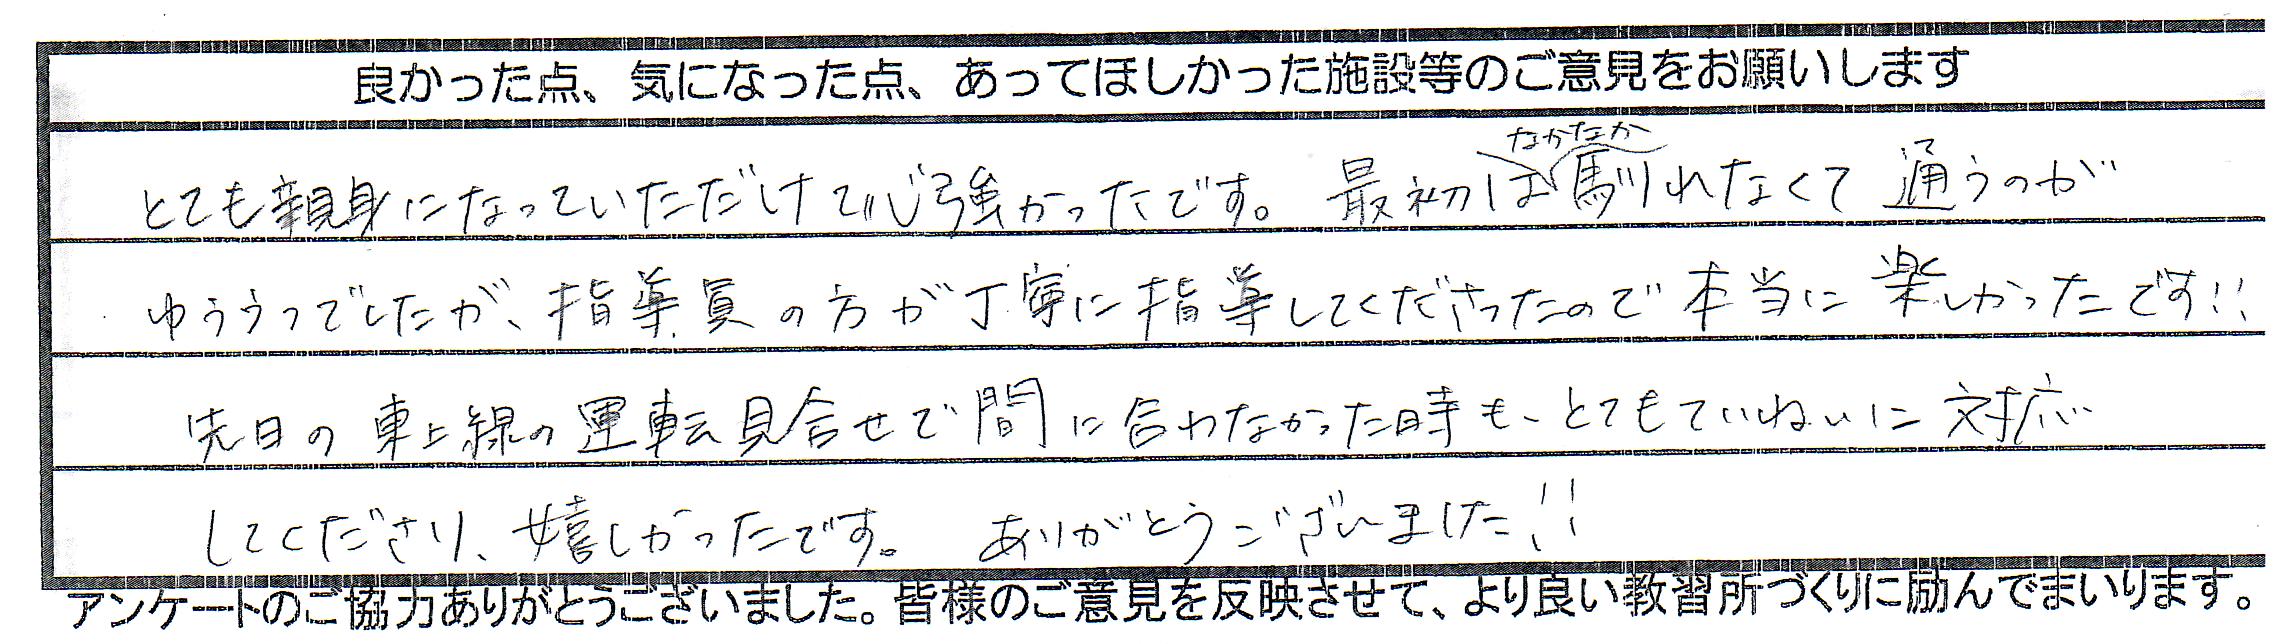 良かった点、気になった点、あってほしかった施設等のご意見をお願いします
とても親身になっていただけて心強かったです。最初はなかなか馴れなくて通うのが
ゆううつでしたが、指導員の方が丁寧に指導してくださったので本当に楽しかったです!!
先日の東上線の運転見合せで間に合わなかった時も、とてもていねいに対応
してくださり、嬉しかったです。ありがとうございました!!
アンケートのご協力ありがとうございました。皆様のご意見を反映させて、より良い教習所づくりに励んでまいります。